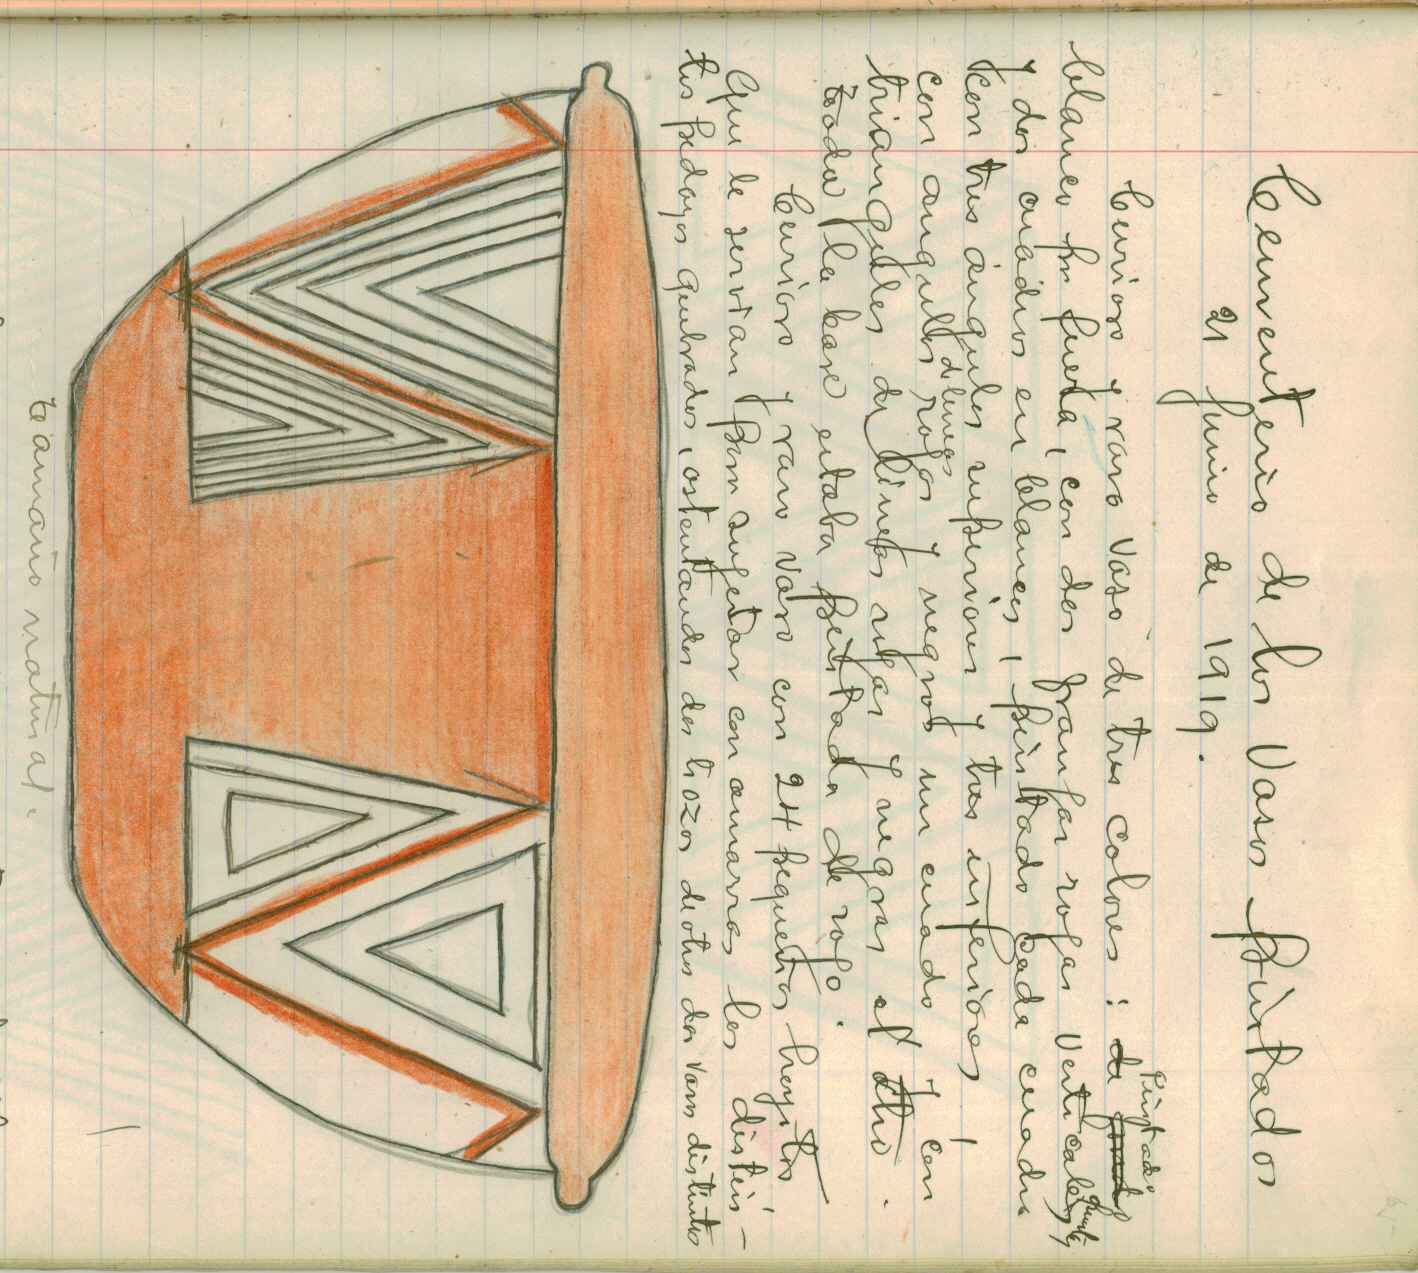 Cementerio de los Vasos pintados
21 junio de 1919.
Curioso y raro vaso de tres colores: de pintado
blanco por fuera, con dos franjas rojas verticales
y dos cuadros en blancos, pintado cada cuadro
con tres ángulos superiores y tres inferiores,
con angulos de lineas rojos y negros un cuado y con
triangules de lineas rojas y negras el otro.
toda la base estaba pintada de rojo.
Curioso y raro vaso con 24 pequeños hoyitos
que le servian para sugetar con amarras los distin-
tos pedazos quebrados, ostentando dos trozos de otros dos vasos distintos
tamaño natural.